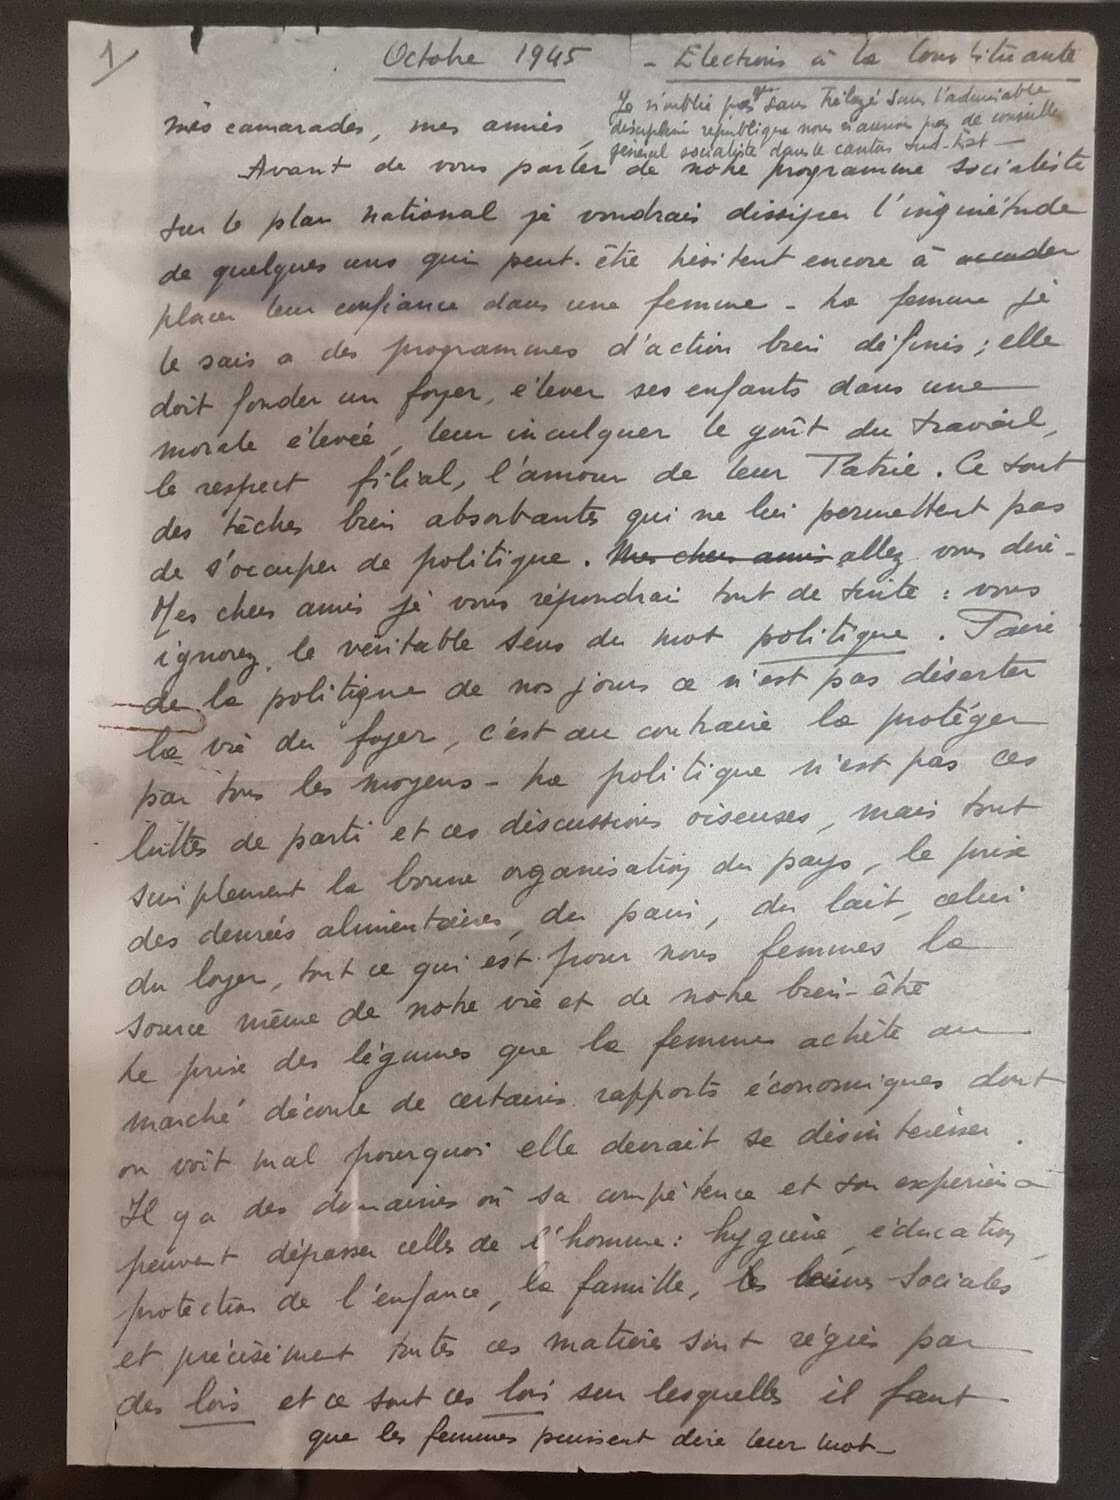 1
Octobre 1945 - Elections à la Constituante
Je n'oublie pas que sans Trélazé sans l'admirable
discipline république nous n'aurions pas de conseiller
général socialiste dans le canton Sud-Est -
Mes camarades, mes amies,
Avant de vous parler de notre programme socialiste
sur le plan national je voudrais dissiper l'inquiétude
de quelques uns qui peut-être hésitent encore à
placer leur confiance dans une femme - La femme je
le sais a des programmes d'action bien définis ; elle
doit fonder un foyer, élever ses enfants dans une
morale élevée, leur inculquer le goût du travail,
le respect filial, l'amour de leur Patrie. Ce sont
des tâches bien absorbantes qui ne lui permettent pas
de s'occuper de politique. Mes chers amis allez vous dire -
Mes chers amis je vous répondrai tout de suite : vous
ignorez le véritable sens du mot politique. Faire
de la politique de nos jours ce n'est pas déserter
la vie du foyer, c'est au contraire la protéger
par tous les moyens - La politique n'est pas ces
luttes de parti et ces discussions oiseuses, mais tout
simplement la bonne organisation du pays, le prix
des denrées alimentaires, du pain, du lait, celui
du loyer, tout ce qui est pour nous femmes la
source même de notre vie et de notre bien-être
Le prix des légumes que la femme achète au
marché découle de certains rapports économiques dont
on voit mal pourquoi elle devrait se désintéresser.
Il y a des domaines où sa compétence et son expérience
peuvent dépasser celles de l'homme : hygiène, éducation,
protection de l'enfance, la famille, les sociales
et précisément toutes ces matières sont régies par
des lois et ce sont ces lois sur lesquelles il faut
que les femmes puissent dire leur mot -